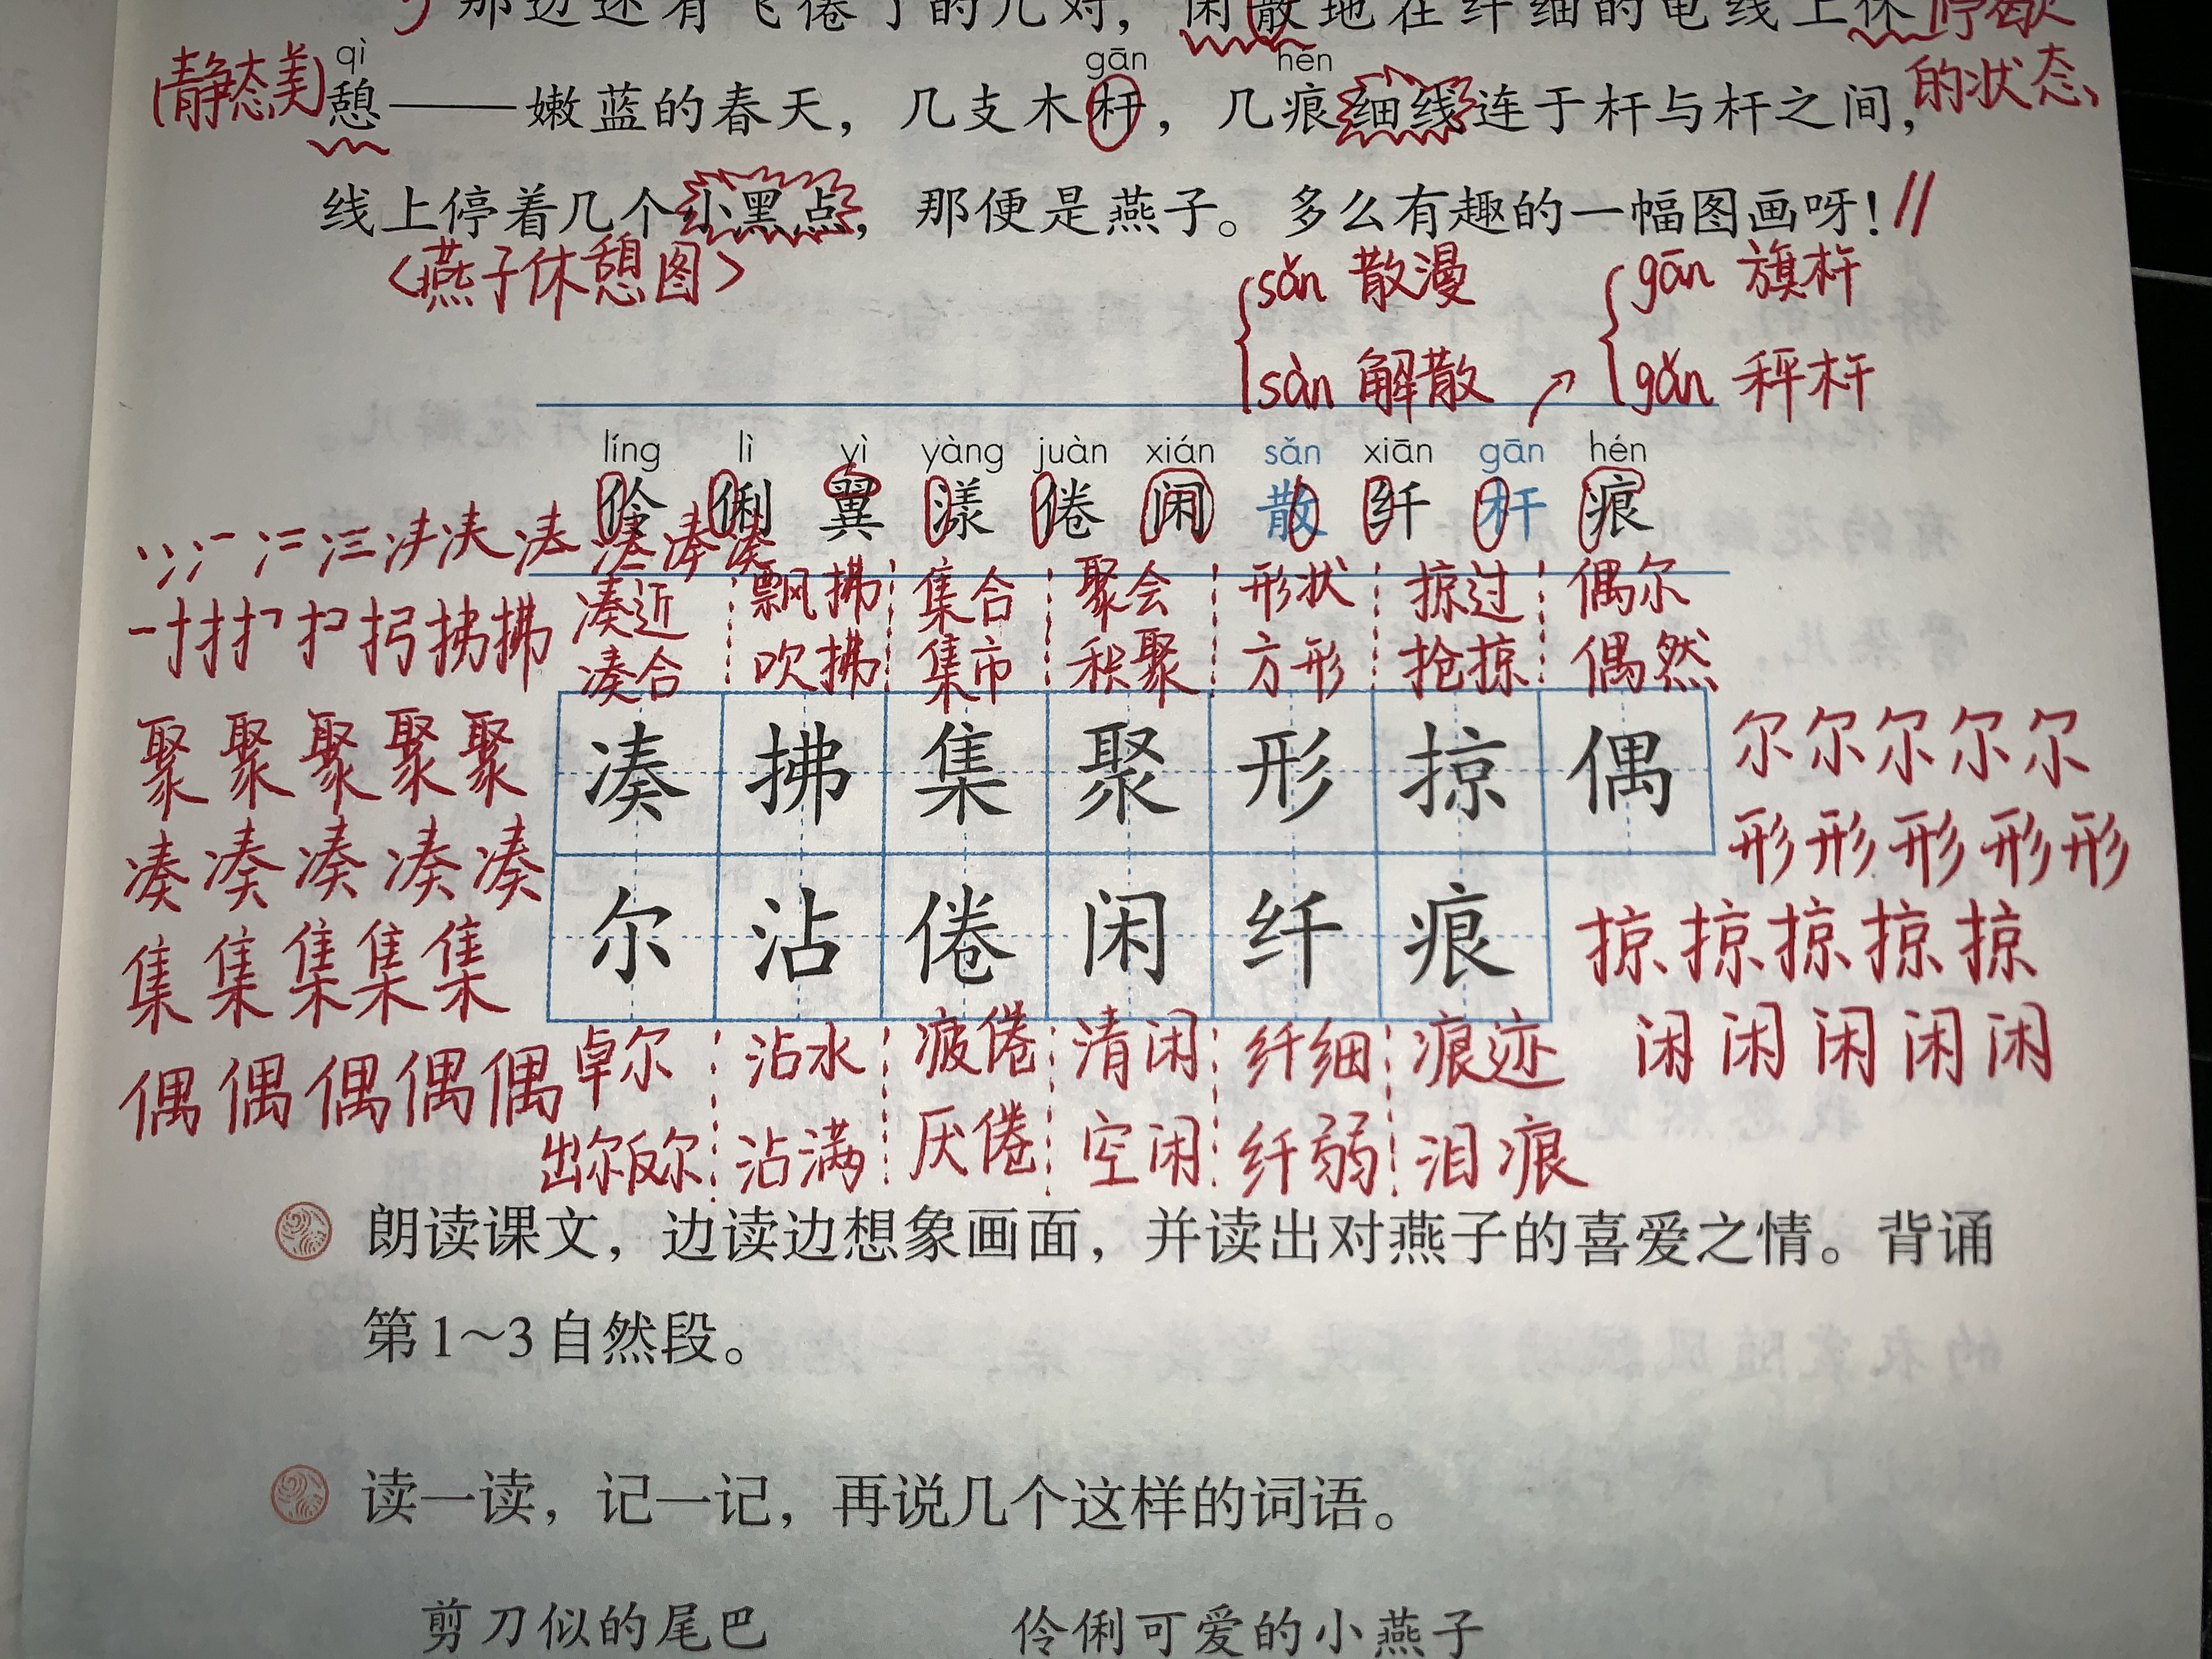 那边还有飞倦了的几对，闲散地在纤细的电线上休 停歇
qì gān hén
(静态美) 憩——嫩蓝的春天，几支木杆，几痕细线连于杆与杆之间， 的状态
线上停着几个小黑点，那便是燕子。多么有趣的一幅图画呀！//
<燕子休憩图>
sǎn 散漫 gān 旗杆
sàn 解散 gǎn 秤杆
líng lì yì yàng juàn xián sǎn xiān gān hén
伶 俐 翼 漾 倦 闲 散 纤 杆 痕
凑近 飘拂 集合 聚会 形状 掠过 偶尔
拂
凑合 吹拂 集市 积聚 方形 抢掠 偶然
聚 聚 聚 聚 聚 凑 拂 集 聚 形 掠 偶 尔 尔 尔 尔 尔
凑 凑 凑 凑 凑 形 形 形 形 形
集 集 集 集 集 尔 沾 倦 闲 纤 痕 掠 掠 掠 掠 掠
偶 偶 偶 偶 偶 卓尔 沾水 疲倦 清闲 纤细 痕迹 闲 闲 闲 闲 闲
出尔反尔 沾满 厌倦 空闲 纤弱 泪痕
朗读课文，边读边想象画面，并读出对燕子的喜爱之情。背诵
第1～3自然段。
读一读，记一记，再说几个这样的词语。
剪刀似的尾巴 伶俐可爱的小燕子